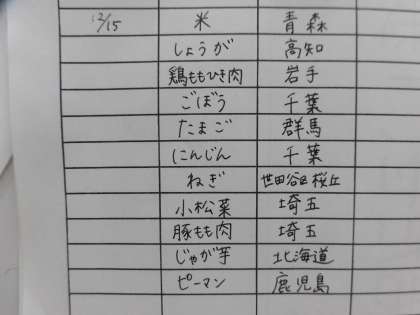 12/15 米 青森
しょうが 高知
鶏ももひき肉 岩手
ごぼう 千葉
たまご 群馬
にんじん 千葉
ねぎ 世田谷区桜丘
小松菜 埼玉
豚もも肉 埼玉
じゃが芋 北海道
ピーマン 鹿児島